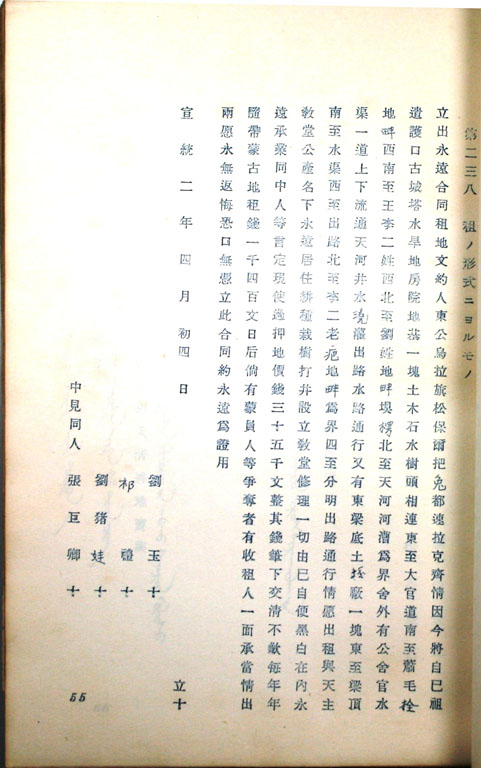 第二三八 租ノ形式ニヨルモノ
立出永遠合同租地文約人東公烏拉旗松保爾把兔都速拉克齊情因今將自己祖
遺護口古城塔水旱地房院地基一塊土木石水樹頭相連東至大官道南至蕭毛拴
地畔西南至王李二姓西北至劉姓地畔垻楞北至天河河灘爲界舍外有公舍官水
渠一道上下流通天河井水澆灌出路水路通行又有東梁底土 廠一塊東至梁頂
南至水渠西至出路北至李二老疤地畔爲界四至分明出路通行情愿出租與天主
敎堂公產名下永遠居住耕種栽樹打井設立敎堂修理一切由已自便黑白在內永
遠承業同中人等言定現使過押地價錢三十五千文整其錢筆下交清不欹每年年
隨帶蒙古地租錢一千四百文日后倘有蒙員人等爭奪者有收租人一面承當情出
兩愿永無返悔恐口無憑立此合同約永遠爲證用
宣統二年四月初四日
立十
劉玉十
祁禮十
劉猪娃十
中見同人 張巨卿十
55